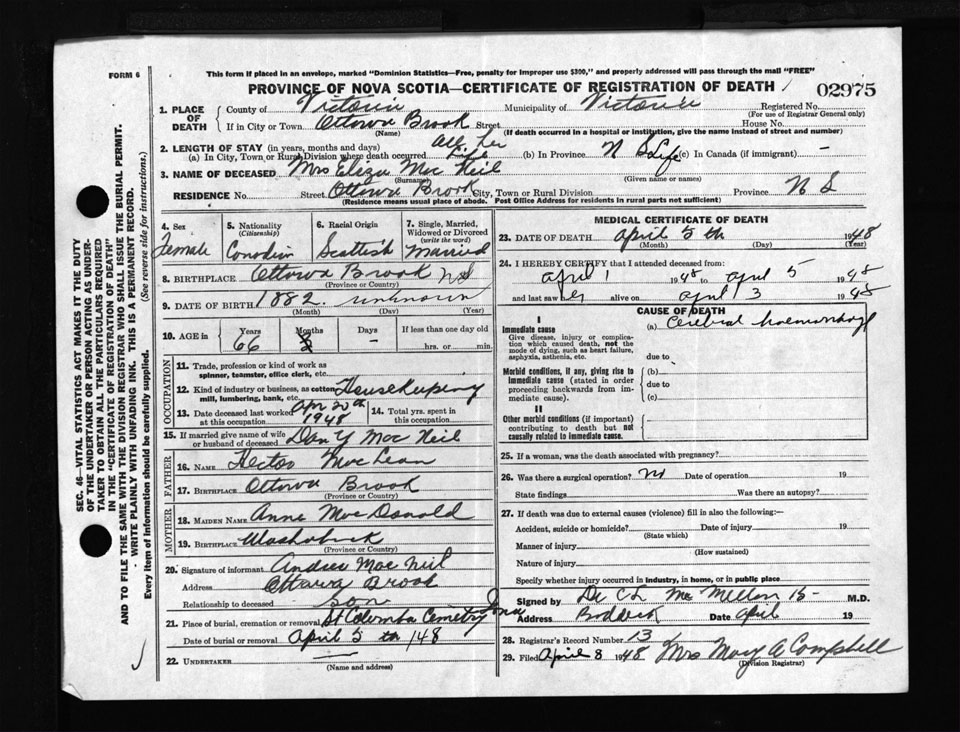 FORM 6
This form if placed in an envelope, marked "Dominion Statistics—Free, penalty for improper use $300," and properly addressed will pass through the mail "FREE"
PROVINCE OF NOVA SCOTIA—CERTIFICATE OF REGISTRATION OF DEATH
02975
SEC. 46—VITAL STATISTICS ACT MAKES IT THE DUTY
OF THE UNDERTAKER OR PERSON ACTING AS UNDER-
TAKER TO OBTAIN ALL THE PARTICULARS REQUIRED
IN THE "CERTIFICATE OF REGISTRATION OF DEATH"
AND TO FILE THE SAME WITH THE DIVISION REGISTRAR WHO SHALL ISSUE THE BURIAL PERMIT.
WRITE PLAINLY WITH UNFADING INK. THIS IS A PERMANENT RECORD.
Every item of information should be carefully supplied. (See reverse side for instructions.)
1. PLACE OF DEATH
County of Victoria Municipality of Victoria Registered No.
(For use of Registrar General only)
If in City or Town Ottowa Brook Street House No.
(Name) (If death occurred in a hospital or institution, give the name instead of street and number)
2. LENGTH OF STAY (in years, months and days) All her
(a) In City, Town or Rural Division where death occurred Life (b) In Province N S Life (c) In Canada (if immigrant) —
3. NAME OF DECEASED Mrs Eliza Mac Neil
(Surname) (Given name or names)
RESIDENCE No. Street Ottowa Brook City, Town or Rural Division Province N S
(Residence means usual place of abode. Post Office Address for residents in rural parts not sufficient)
4. Sex
Female
5. Nationality
(Citizenship)
Canadian
6. Racial Origin
Scottish
7. Single, Married,
Widowed or Divorced
(write the word)
Married
8. BIRTHPLACE Ottowa Brook NS
(Province or Country)
9. DATE OF BIRTH 1882. unknown
(Month) (Day) (Year)
10. AGE in
Years
66
Months
Days
—
If less than one day old
hrs. or min.
OCCUPATION
11. Trade, profession or kind of work as
spinner, teamster, office clerk, etc.
12. Kind of industry or business, as cotton
mill, lumbering, bank, etc. Housekeeping
13. Date deceased last worked
at this occupation Apr 20th 1948
14. Total yrs. spent in
this occupation
15. If married give name of wife
or husband of deceased Dan Y Mac Neil
FATHER
16. NAME Hector MacLean
17. BIRTHPLACE Ottowa Brook
(Province or Country)
MOTHER
18. MAIDEN NAME Anne Mac Donald
19. BIRTHPLACE Washabuck
(Province or Country)
20. Signature of informant Andrew Mac Neil
Address Ottawa Brook
Relationship to deceased son
21. Place of burial, cremation or removal St Columba Cemetery Iona
Date of burial or removal April 5 th 148
22. UNDERTAKER
(Name and address)
MEDICAL CERTIFICATE OF DEATH
23. DATE OF DEATH April 5 th 1948
(Month) (Day) (Year)
24. I HEREBY CERTIFY that I attended deceased from:
April 1 1948 to April 5 1948
and last saw her alive on April 3 1948
CAUSE OF DEATH
I
Immediate cause
Give disease, injury or complica-
tion which caused death, not the
mode of dying, such as heart failure,
asphyxia, asthenia, etc.
(a) Cerebral haemorrhage
due to
Morbid conditions, if any, giving rise to
immediate cause (stated in order
proceeding backwards from im-
mediate cause).
(b)
due to
(c)
II
Other morbid conditions (if important)
contributing to death but not
causally related to immediate cause.
25. If a woman, was the death associated with pregnancy?
26. Was there a surgical operation? no Date of operation 19
State findings Was there an autopsy?
27. If death was due to external causes (violence) fill in also the following:—
Accident, suicide or homicide? Date of injury 19
(State which)
Manner of injury
(How sustained)
Nature of injury
Specify whether injury occurred in industry, in home, or in public place
Signed by Dr C L Mc Millon M.D.
Address Baddeck Date April 19
28. Registrar's Record Number 13
29. Filed April 8 1948 Mrs Mary A Campbell
(Division Registrar)